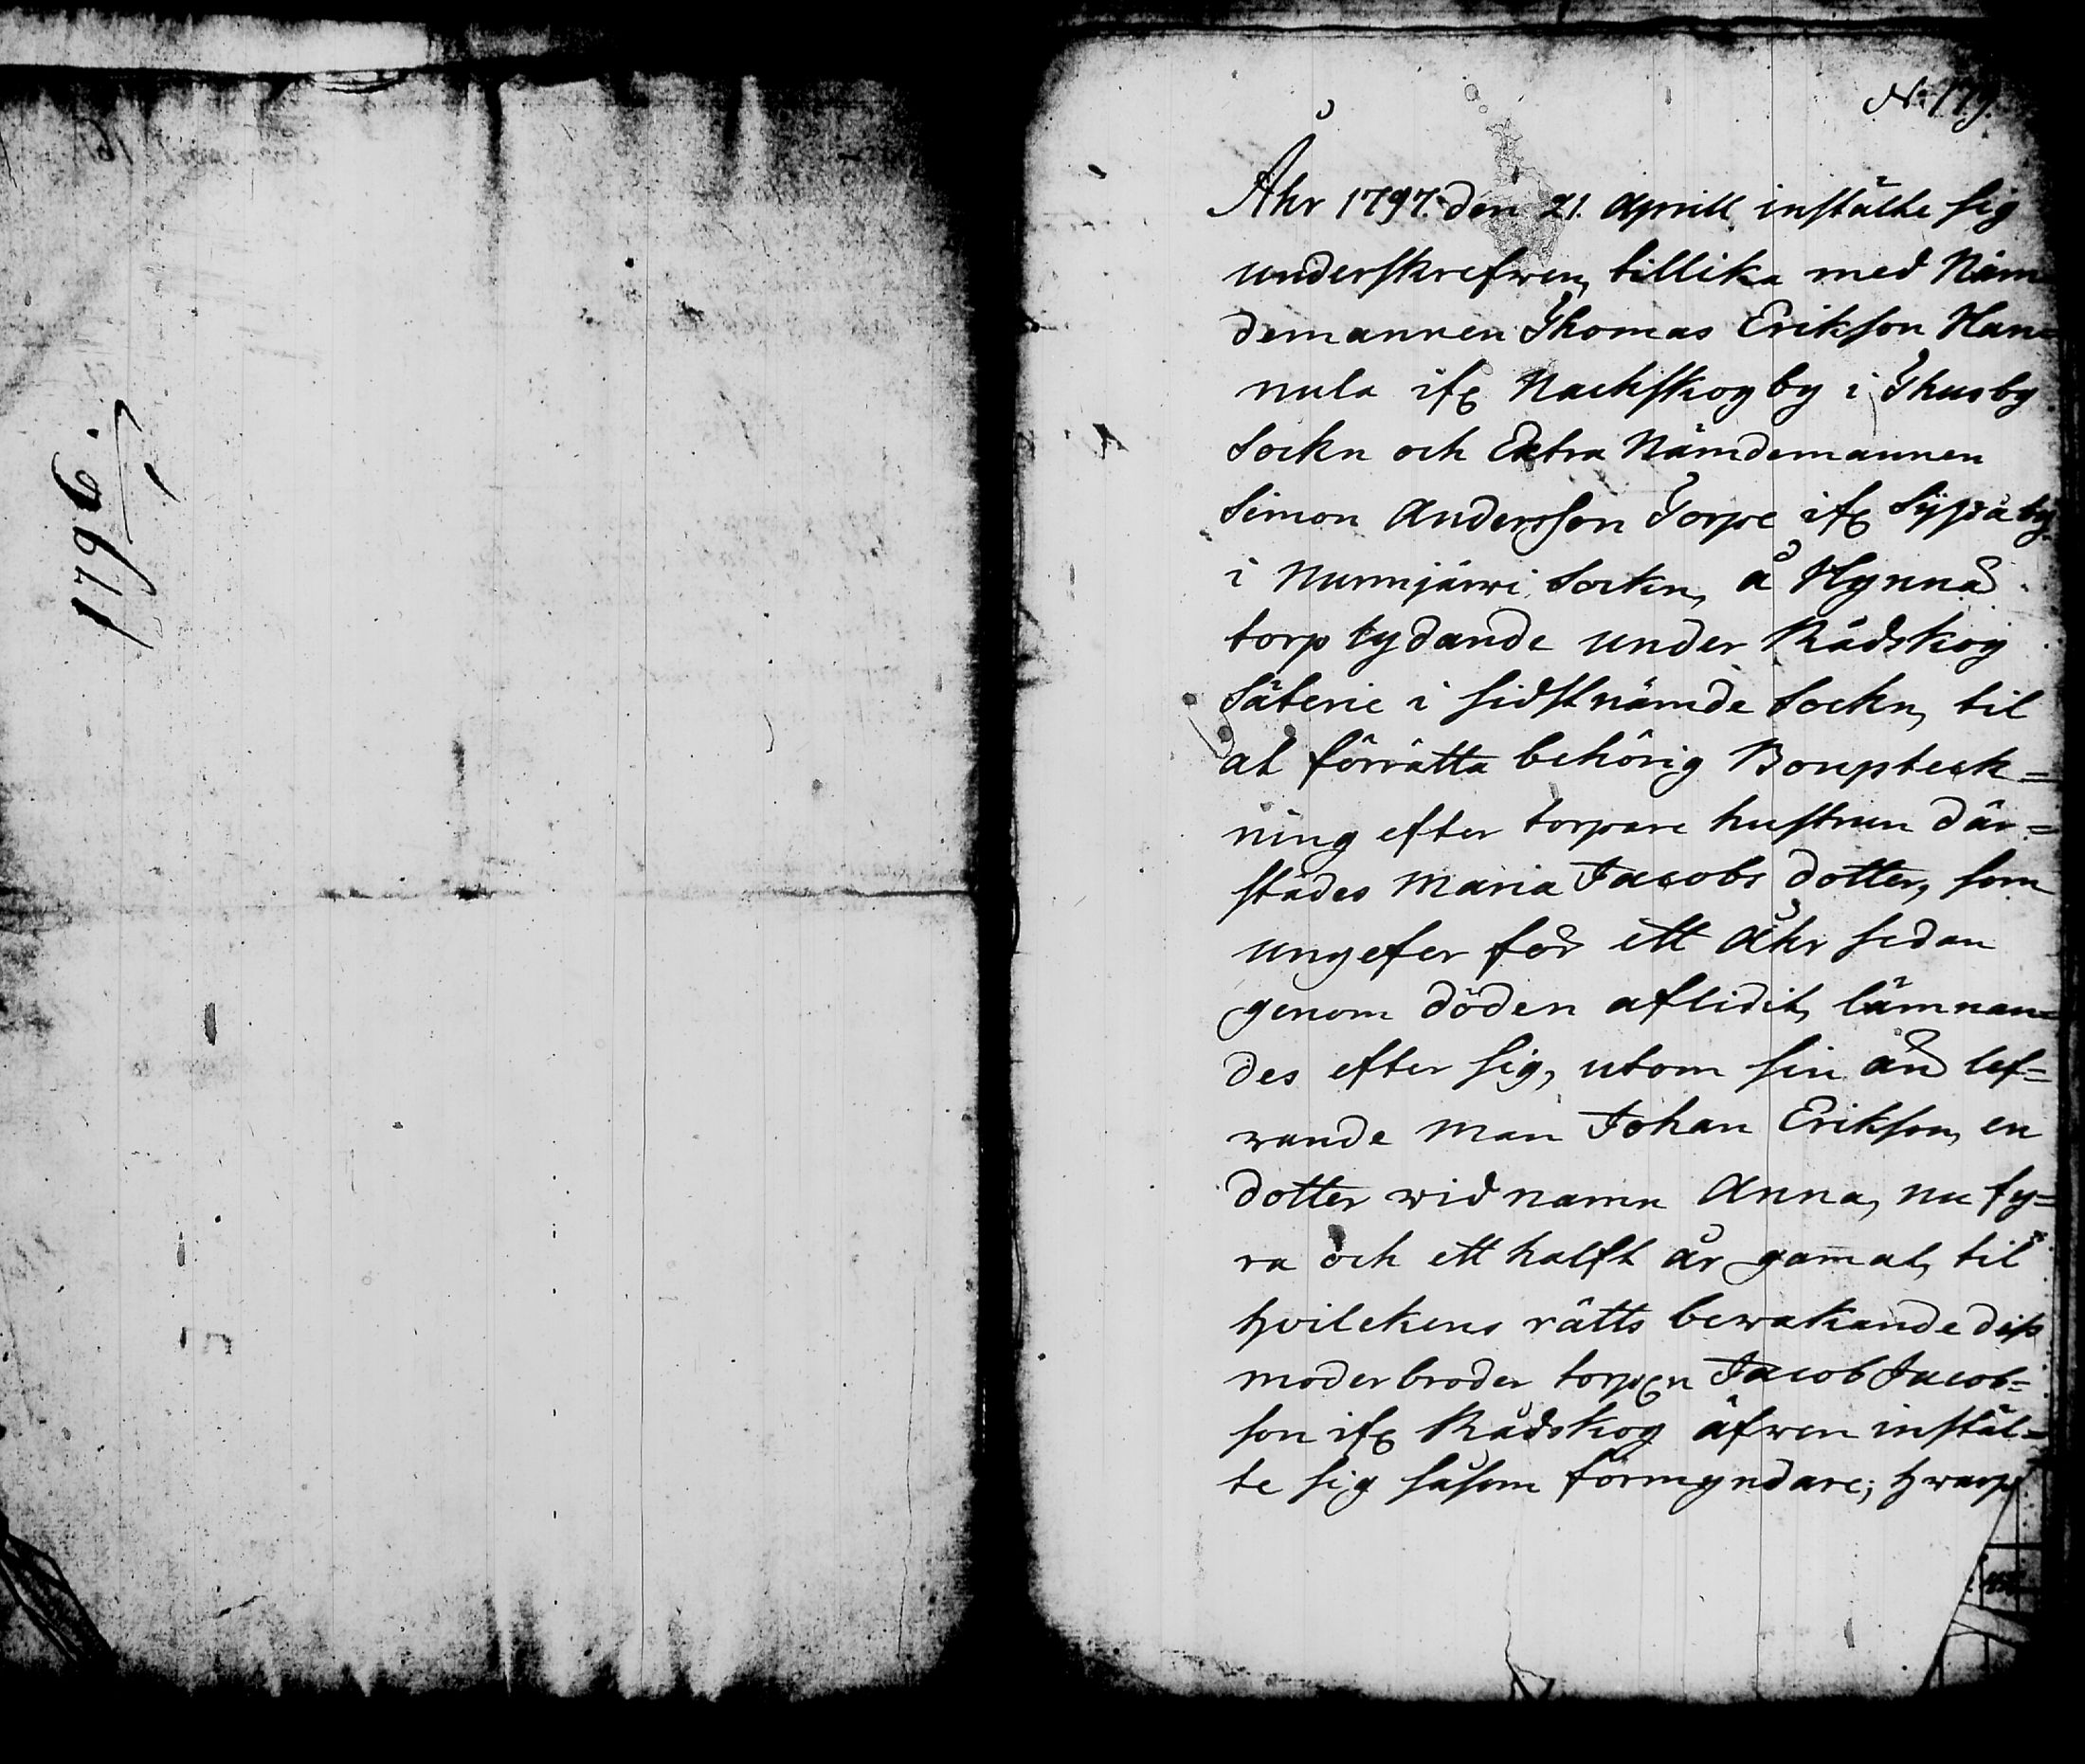 1796.
No 179.
Åhr 1797. den 21. Aprill instälte sig
underskrefwen, tillika med Näm-
demannen Thomas Erikson Han=
nula ifr Nackskog by i Thusby
Sockn och Extra Nämdemannen
Simon Andersson Torpe ifr Syysä by
i Nurmijärwi Sockn, å Hynnä
torp lydande under Rådskog
Säterie i sidstnämde Sockn, til
at förrätta behörig Boupteck=
ning efter torpare hustrun där=
städes Maria Jacobs dotter, som
ungefer för ett åhr sedan
genom döden aflidit, lämnan=
des efter sig, utom sin än lef=
wande man Johan Erikson, en
dotter wid namn Anna, nu fy=
ra och ett halft år gamal, til
hvilckens rätts bewakande dess
moderbroder torparen Jacob Jacob=
son ifr Rådskog äfwen instäl=
te sig såsom förmyndare; hwarp